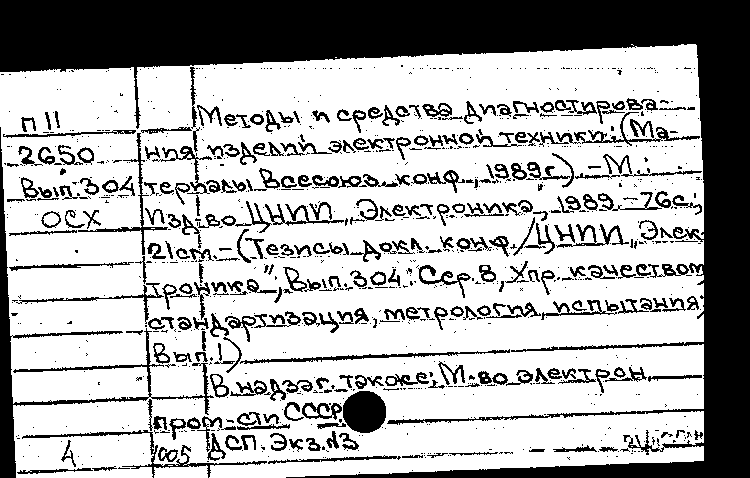 П11 Методы и средства диагностирова-
2650 ния изделий электронной техники: (Ма-
Вып.304 териалы Всесоюз. конф., 1989г.). – М.:
ОСХ Изд-во ЦНИИ „Электроника", 1989. – 76с.;
21см. – (Тезисы докл. конф. / ЦНИИ „Элек-
троника", Вып. 304: Сер. 8, Упр. качеством,
стандартизация, метрология, испытания;
Вып.1)
В надзаг. также: М-во электрон.
пром-сти СССР
4 1005 ДСП. Экз.№3